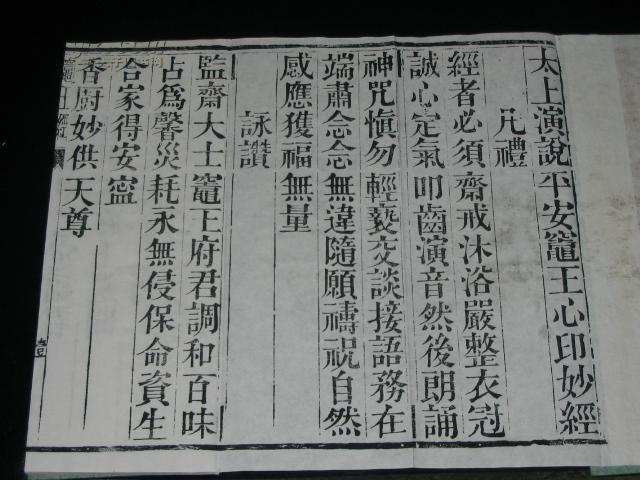 太上演說平安竈王心印妙經
凡禮
經者必須齋戒沐浴嚴整衣冠
誠心定氣叩齒演音然後朗誦
神咒愼勿輕褻交談接語務在
端肅念念無違隨願禱祝自然
感應獲福無量
詠讚
監齋大士竈王府君調和百味
占爲馨災耗永無侵保命資生
合家得安寍
香厨妙供天尊